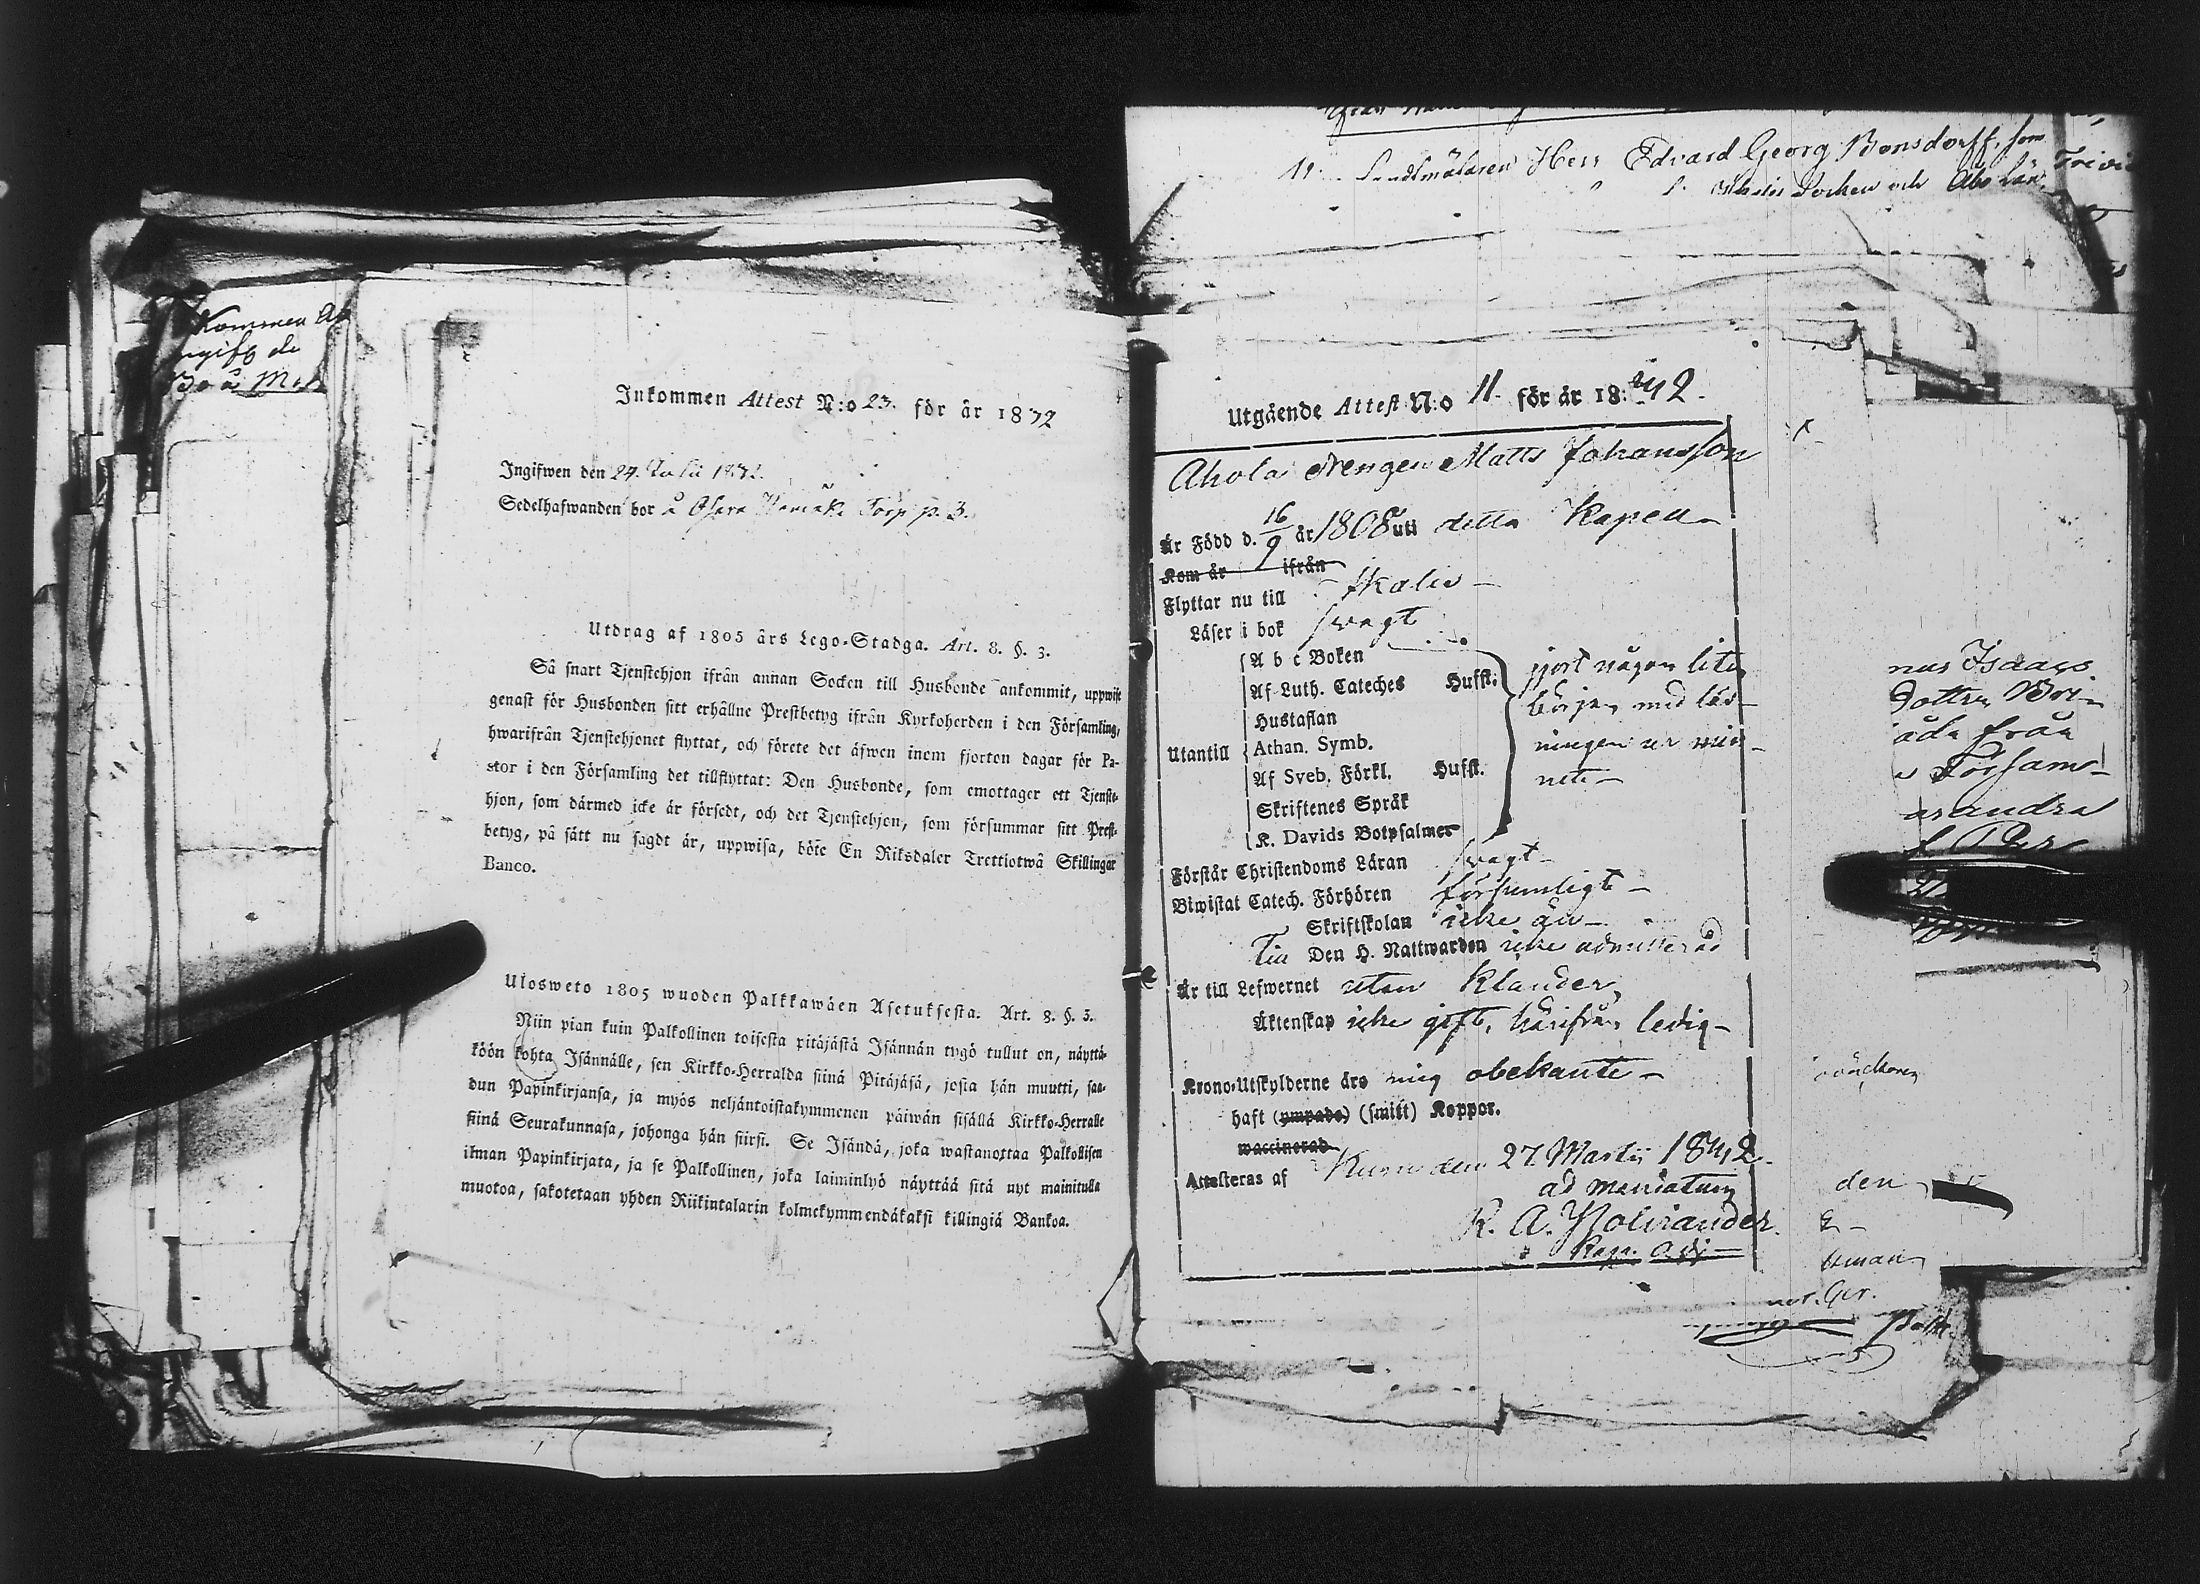 Kommen
Bo å
Inkommen Attest N:o 23. för år 1832
Ingifwen den 24. Julii 1832.
Sedelhafwanden bor å Torp p. 3.
Utdrag af 1805 års Lego-Stadga. Art. 8. §. 3.
Så snart Tjenstehjon ifrån annan Socken till Husbonde ankommit, uppwise
genast för Husbonden sitt erhållne Prestbetyg ifrån Kyrkoherden i den Församling,
hwarifrån Tjenstehjonet flyttat, och förete det äfwen inem fjorton dagar för Pa-
stor i den Församling det tillflyttat: Den Husbonde, som emottager ett Tjenste-
hjon, som därmed icke är försedt, och det Tjenstehjon, som försummar sitt Prest-
betyg, på sätt nu sagdt är, uppwisa, böte En Riksdaler Trettiotwå Skillingar
Banco.
Ulosweto 1805 wuoden Palkkawäen Asetuksesta. Art. 8. §. 3.
Niin pian kuin Palkollinen toisesta pitäjästä Isännän tygö tullut on, näyttä-
köön kohta Isännälle, sen Kirkko-Herralda siinä Pitäjäsä, josta hän muutti, saa-
dun Papinkirjansa, ja myös neljäntoistakymmenen päiwän sisällä Kirkko-Herralle
siinä Seurakunnasa, johonga hän siirsi. Se Isändä, joka wastanottaa Palkollisen
ilman Papinkirjata, ja se Palkollinen, joka laiminlyö näyttää sitä nyt mainitulla
muotoa, sakotetaan yhden Riikintalarin kolmekymmendäkaksi killingiä Bankoa.
Herr Edvard Georg Bonsdorff, som
Socken och Åbo Län
Utgående Attest N:o 11. för år 1842.
Ahola Drengen Matts Johansson
Är Född d. 16/9 år 1808 uti detta Kapell
Kom år ifrån
Flyttar nu till
Läser i bok svagt
A b c Boken
Af Luth. Cateches Hufst.
Hustaflan
Utantill Athan. Symb.
Af Sveb. Förkl. Hufst.
Skriftenes Språk
K. Davids Botpsalmer
gjort någon liten
början med läs-
ningen ur min-
net
Förstår Christendoms Läran svagt
Biwistat Catech. Förhören försumligt
Skriftskolan icke än
Till Den H. Nattwarden icke admitterad
Är till Lefwernet utan klander,
Äktenskap icke gift, härifrån ledig
Krono-Utskylderne äro mig obekante
haft (ympade) (smitt) Koppor.
waccinerad
Attesteras af den 27 Martii 1842.
ad mandatum
K. A.
Kap. Adj.
nas Isaacs
Dotter
från
Försam-
den